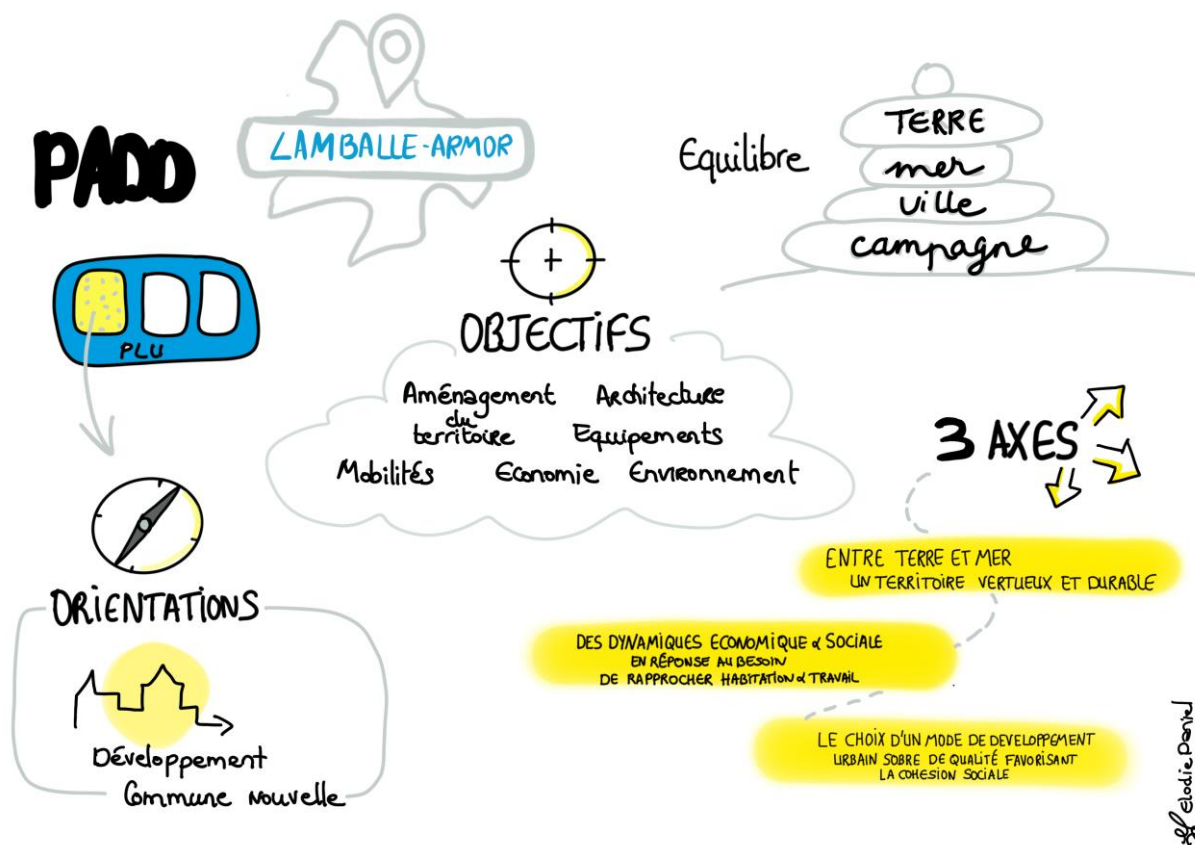 PADD
LAMBALLE-ARMOR
Equilibre
TERRE
mer
ville
campagne
PLU
OBJECTIFS
Aménagement
du
territoire
Architecture
Equipements
Mobilités
Economie
Environnement
ORIENTATIONS
Développement
Commune nouvelle
3 AXES
ENTRE TERRE ET MER
UN TERRITOIRE VERTUEUX ET DURABLE
DES DYNAMIQUES ECONOMIQUE & SOCIALE
EN RÉPONSE AU BESOIN
DE RAPPROCHER HABITATION & TRAVAIL
LE CHOIX D'UN MODE DE DEVELOPPEMENT
URBAIN SOBRE DE QUALITÉ FAVORISANT
LA COHESION SOCIALE
Elodie Daniel